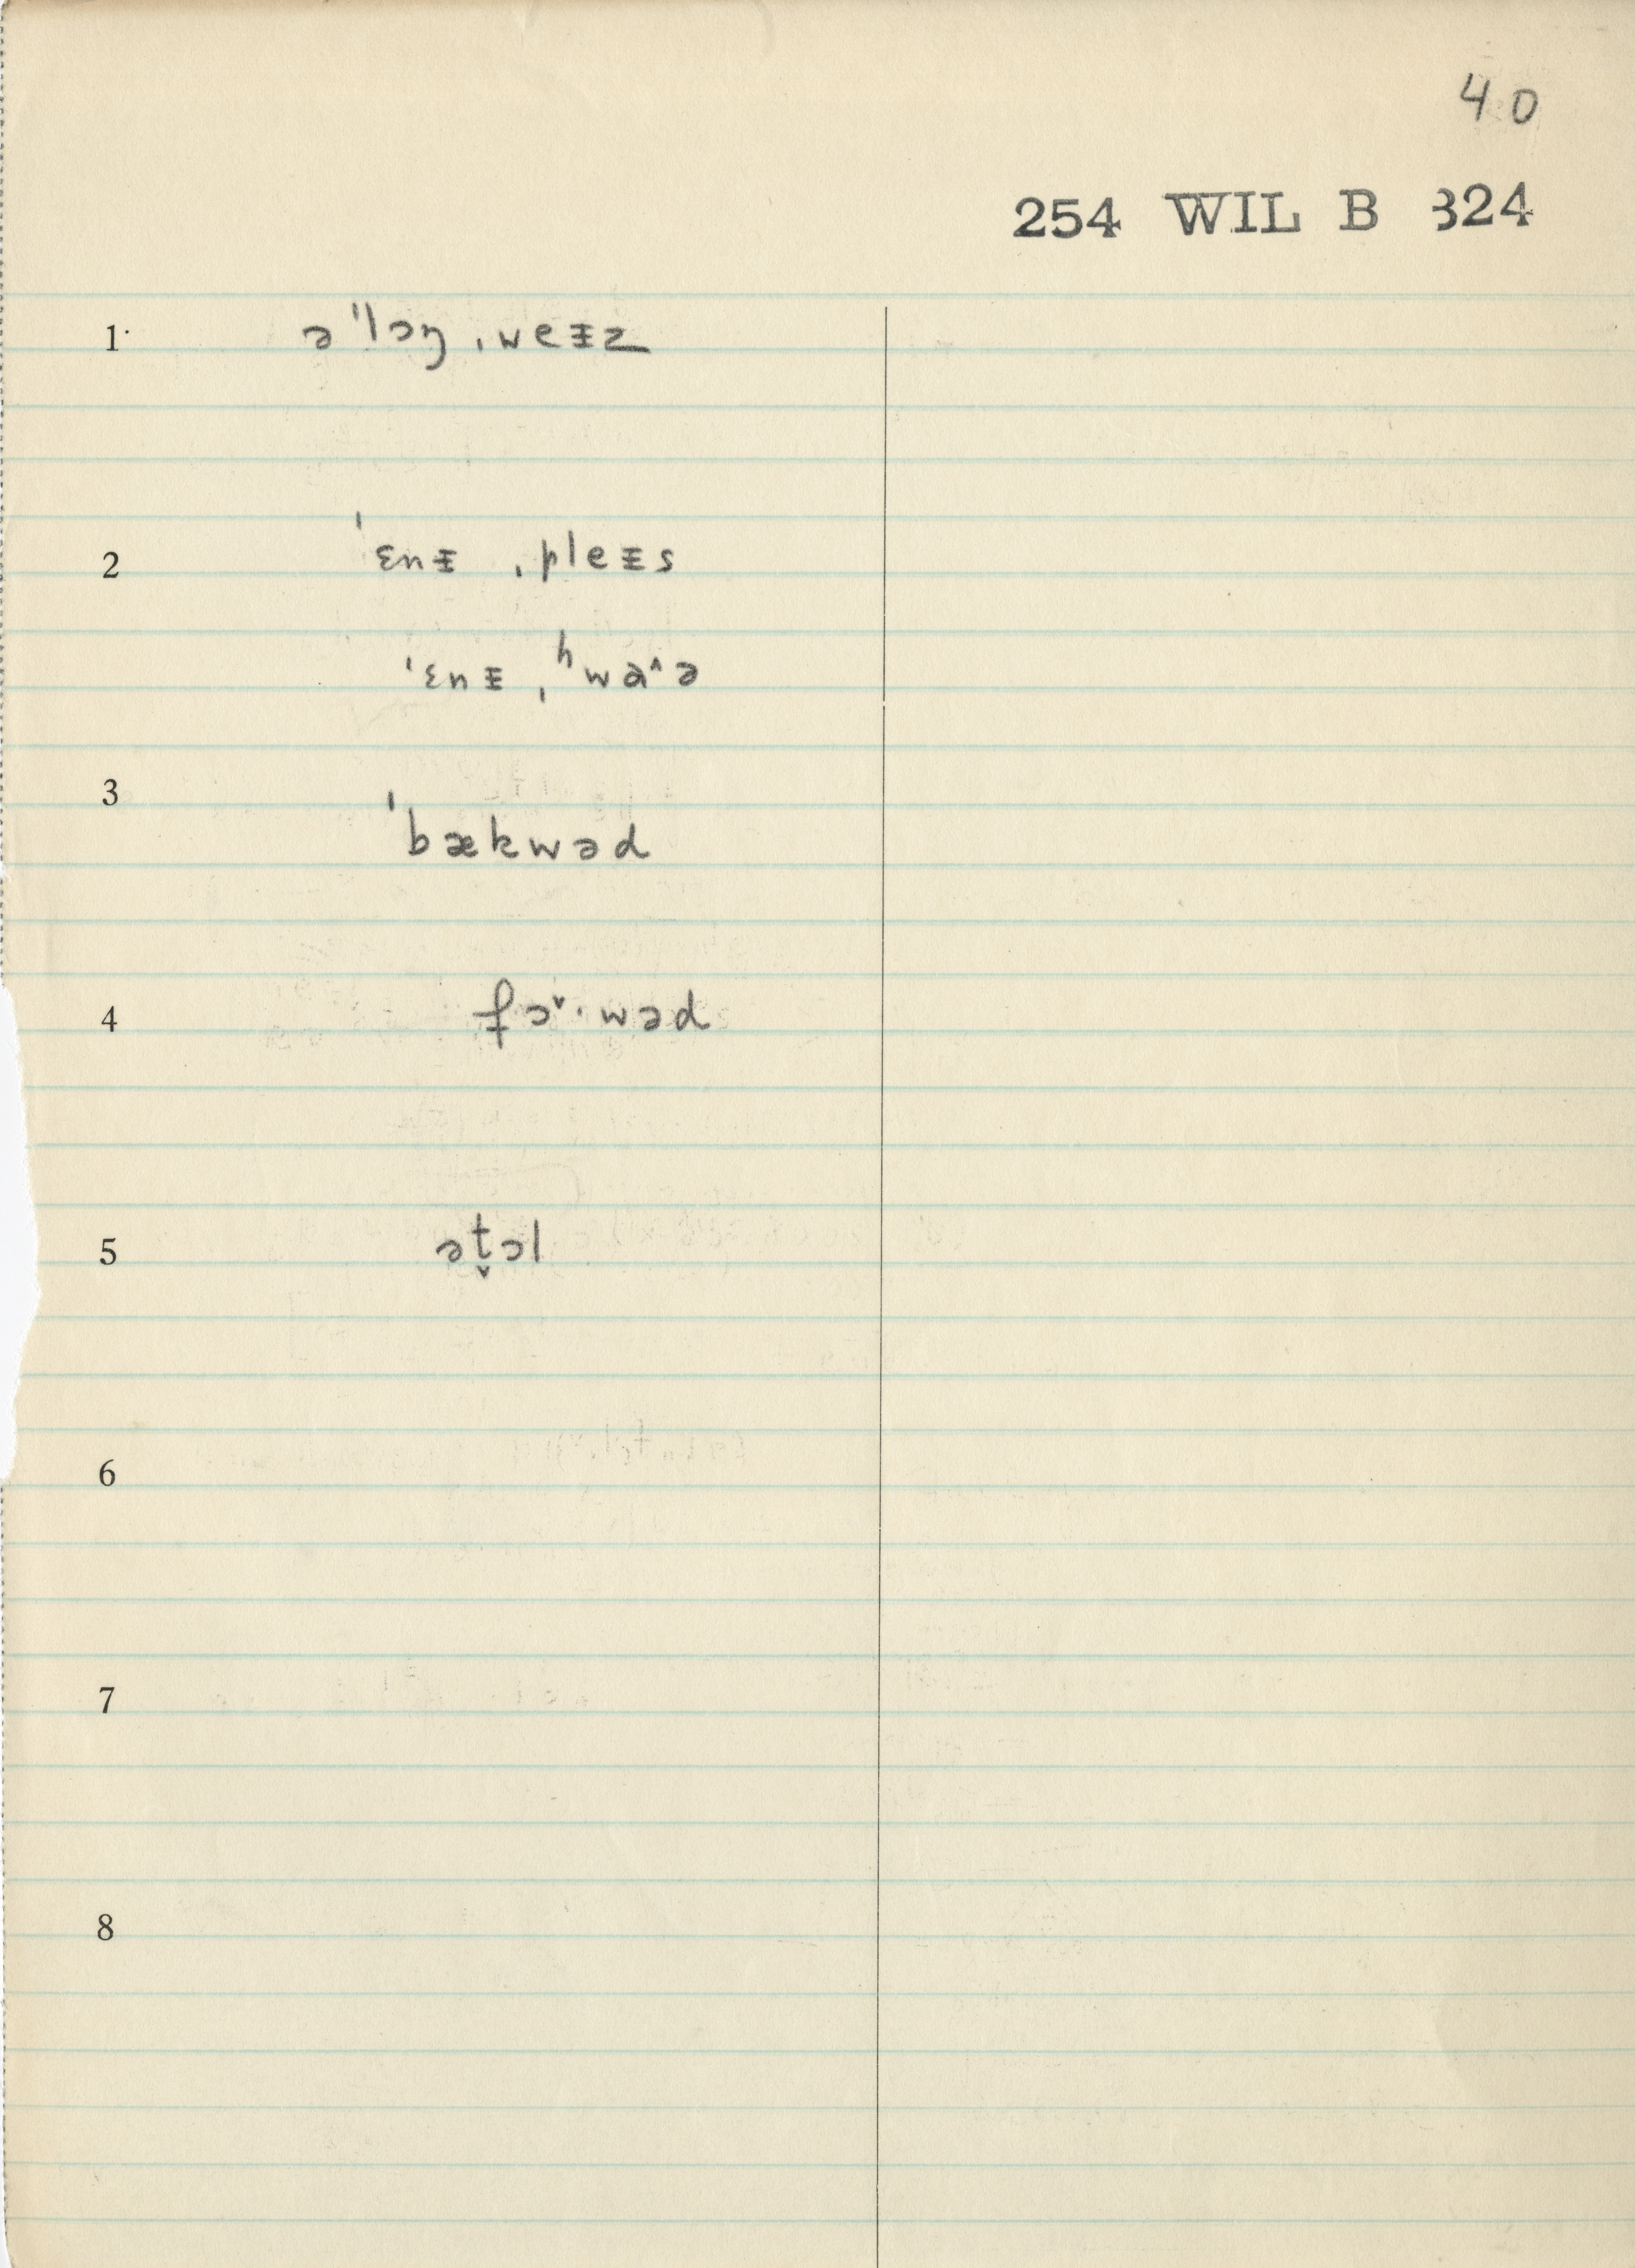 40
254 WIL B 324
1 ə ˈlɔŋ ˌweᵻz
2 ˈɛnᵻ ˌpleᵻs
ˈɛnᵻ ˌʰwa˄ə
3 ˈbækwəd
4 fɔ˅·wəd
5 ət̬ɔl
6
7
8